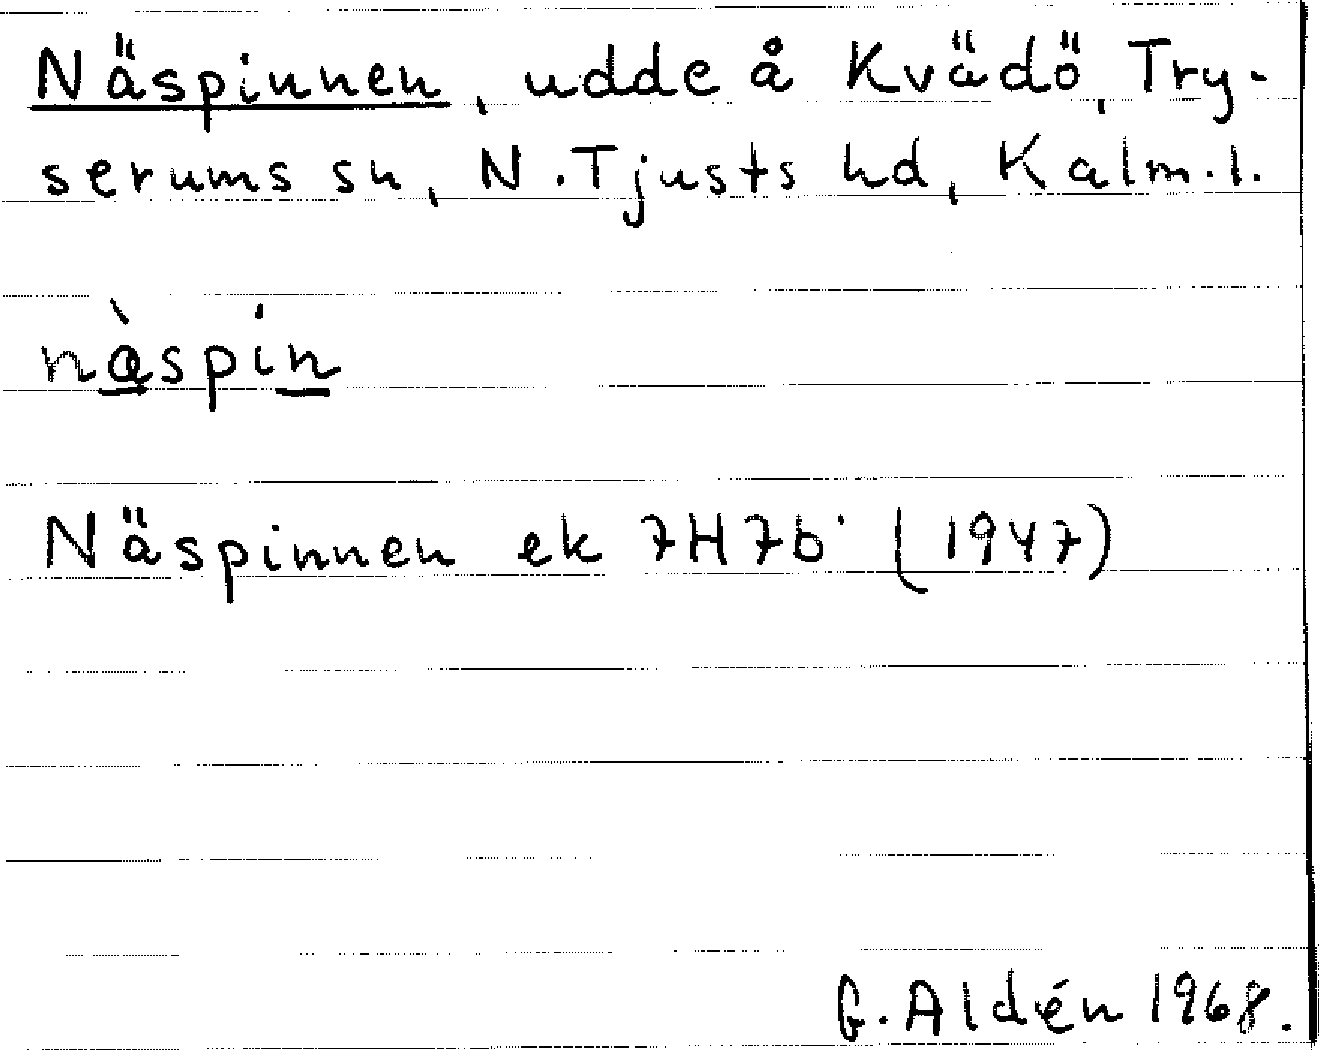 Näspinnen, udde å Kvädö, Try-
serums sn, N. Tjusts hd, Kalm. l.
nàspin
Näspinnen ek 7H7b (1947)
G. Aldén 1968.